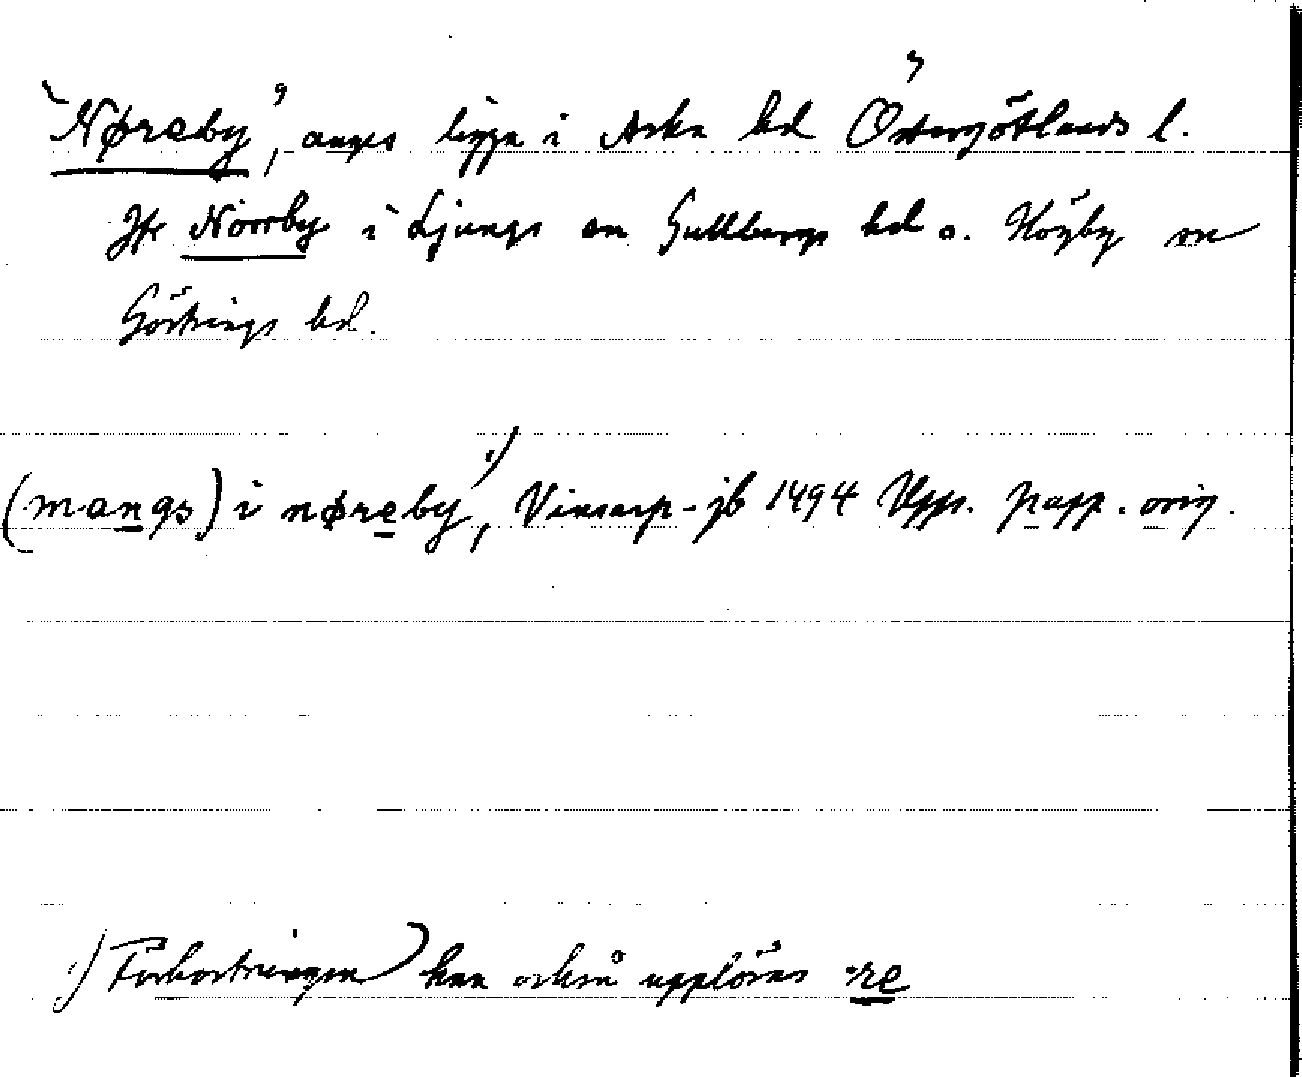 "Nøreby", anges ligga i Aska hd Östergötlands l.
Jfr Norrby i Ljungs sn Gullbergs hd o. Högby sn
Göstrings hd.
(mangs) i nøreby¹⁾, Vinsarp-jb 1494 Upps. papp. orig.
¹⁾ Förkortningen kan också upplösas -re